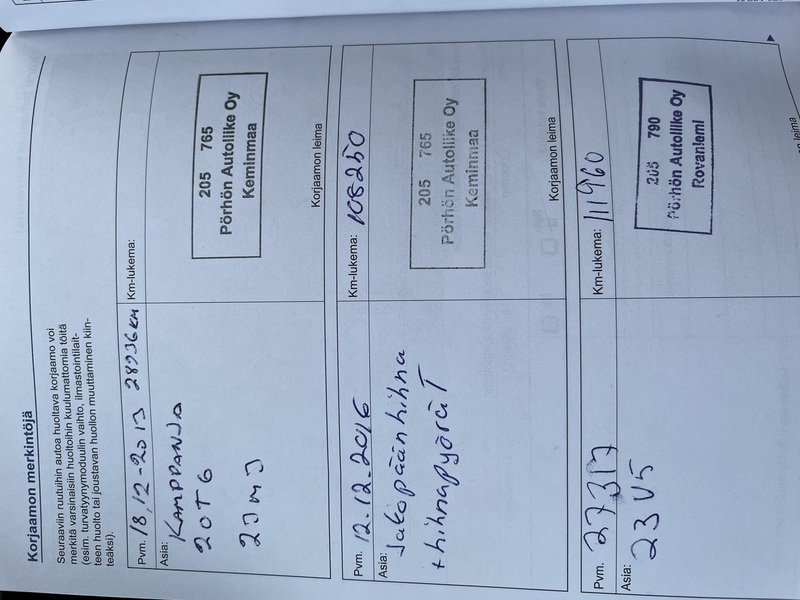 Korjaamon merkintöjä
Seuraaviin ruutuihin autoa huoltava korjaamo voi
merkitä varsinaisiin huoltoihin kuulumattomia töitä
(esim. turvatyynymoduulin vaihto, ilmastointilait-
teen huolto tai joustavan huollon muuttaminen kiin-
teäksi).
Pvm. 18.12-2013 28936 KM Km-lukema:
Asia: KAMPPANJA
20T6
2JMJ
205 765
Pörhön Autoliike Oy
Keminmaa
Korjaamon leima
Pvm. 12.12.2016 Km-lukema: 108250
Asia:
Jakopäänhihna
+ hihnapyörät
205 765
Pörhön Autoliike Oy
Keminmaa
Korjaamon leima
Pvm. 27317 Km-lukema: 111960
Asia: 23V5
205 790
Pörhön Autoliike Oy
Rovaniemi
leima